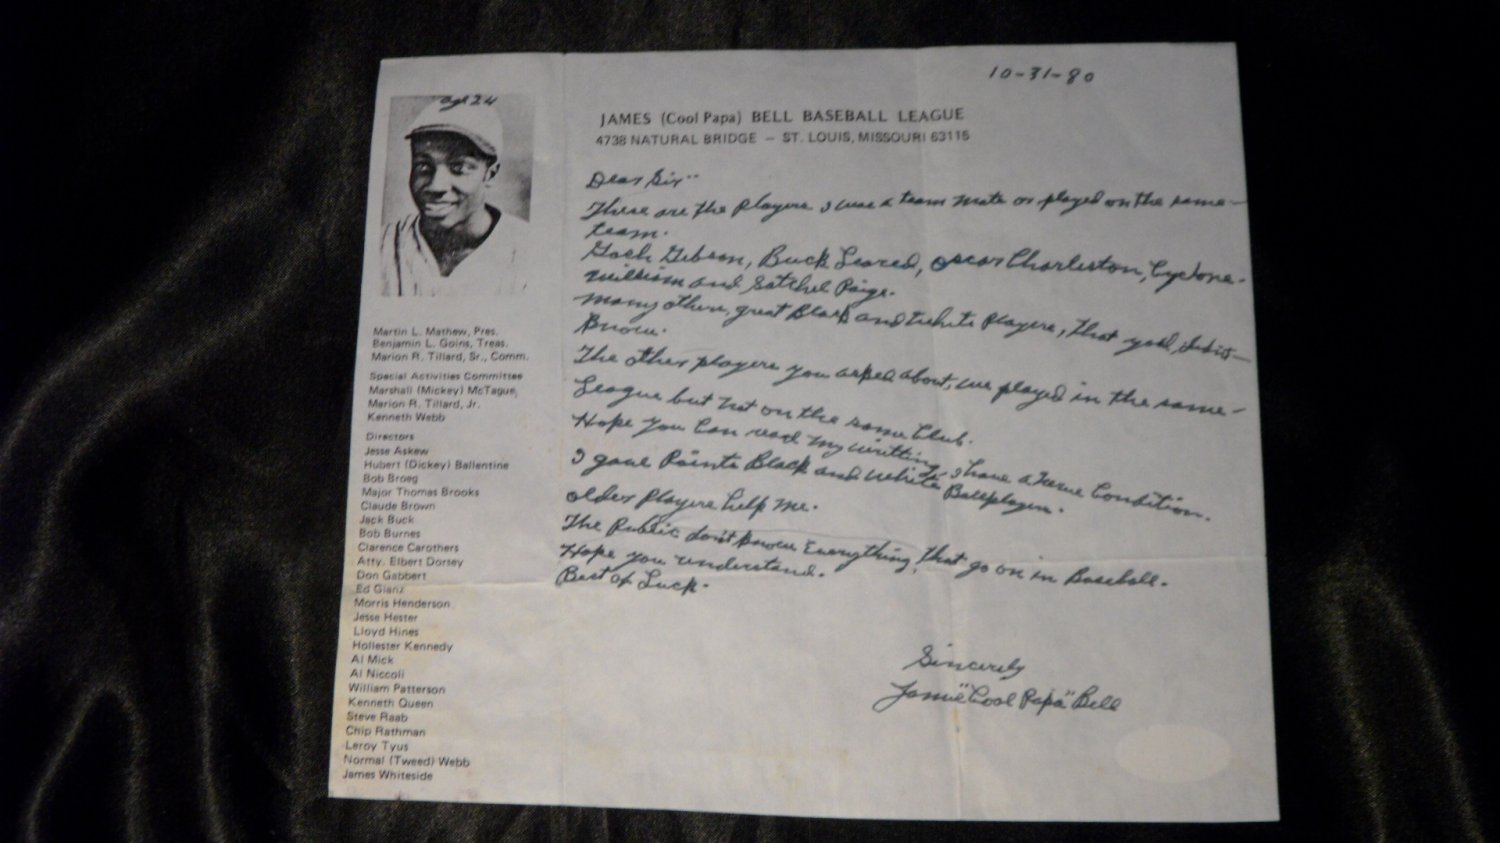 10-31-80
age 24
JAMES (Cool Papa) BELL BASEBALL LEAGUE
4738 NATURAL BRIDGE — ST. LOUIS, MISSOURI 63115
Dear Sir"
These are the players I was a team mate or played on the same
team.
Gosh Gibson, Buck Leared, oscar Charleston, Cyclone
william and Satchel Paige.
many others, great Black and white players, that you, didn't
Know.
The other players you asked about, we played in the same
League but not on the same Club.
Hope you can read my writting, I have a nerve Condition.
I gave Points Black and white Ballplayers.
older players help me.
The Public don't know everything, that go on in Baseball.
Hope you understand.
Best of Luck.
Sincerely
Jamie "Cool Papa" Bell
Martin L. Mathew, Pres.
Benjamin L. Goins, Treas.
Marion R. Tillard, Sr., Comm.
Special Activities Committee
Marshall (Mickey) McTague,
Marion R. Tillard, Jr.
Kenneth Webb
Directors
Jesse Askew
Hubert (Dickey) Ballentine
Bob Broeg
Major Thomas Brooks
Claude Brown
Jack Buck
Bob Burnes
Clarence Carothers
Atty. Elbert Dorsey
Don Gabbert
Ed Glanz
Morris Henderson
Jesse Hester
Lloyd Hines
Hollester Kennedy
Al Mick
Al Niccoli
William Patterson
Kenneth Queen
Steve Raab
Chip Rathman
Leroy Tyus
Normal (Tweed) Webb
James Whiteside